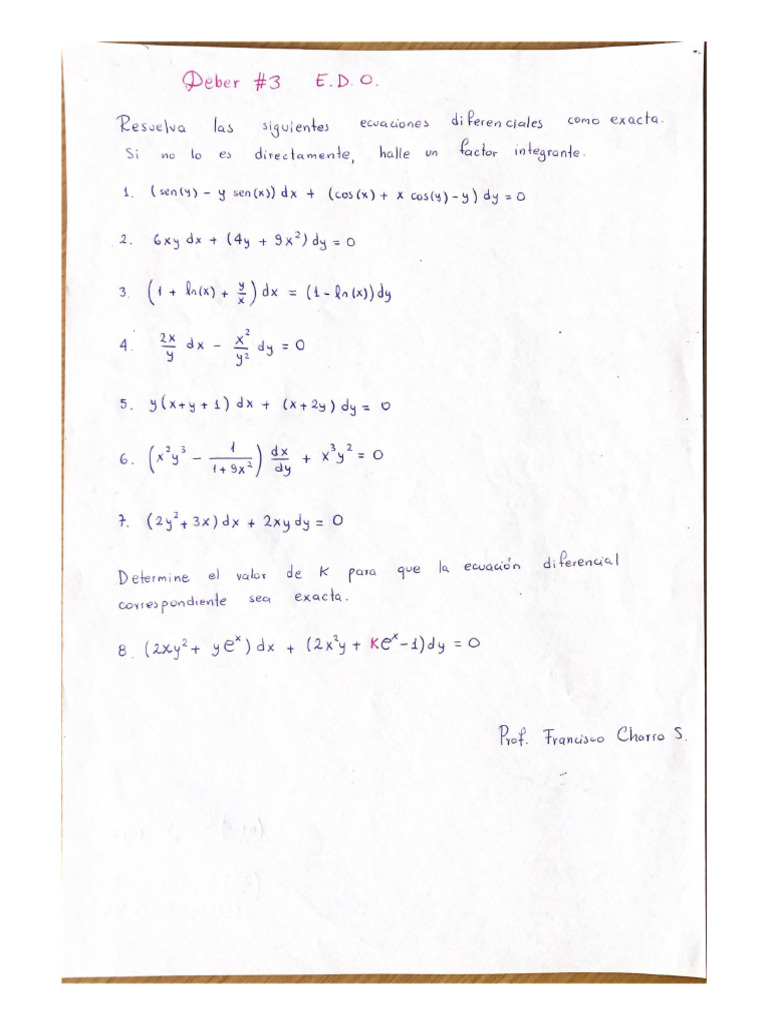 Deber #3 E.D.O.
Resuelva las siguientes ecuaciones diferenciales como exacta.
Si no lo es directamente, halle un factor integrante.
1. (sen(y) - y sen(x)) dx + (cos(x) + x cos(y) - y) dy = 0
2. 6xy dx + (4y + 9x²) dy = 0
3. (1 + ln(x) + y/x) dx = (1 - ln(x)) dy
4. 2x/y dx - x²/y² dy = 0
5. y(x + y + 1) dx + (x + 2y) dy = 0
6. (x²y³ - 1/(1 + 9x²)) dx/dy + x³y² = 0
7. (2y² + 3x) dx + 2xy dy = 0
Determine el valor de K para que la ecuación diferencial
correspondiente sea exacta.
8. (2xy² + ye^x) dx + (2x²y + Ke^x - 1) dy = 0
Prof. Francisco Charro S.